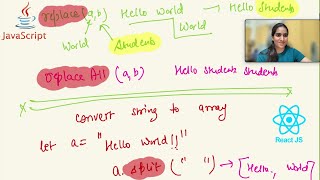 JavaScript
replace(a,b) Hello World Hello Students
World Students
replace All (a,b) Hello Students Students
convert string to array
let a= "Hello World!!"
a.split(" ") → [Hello, World]
React JS